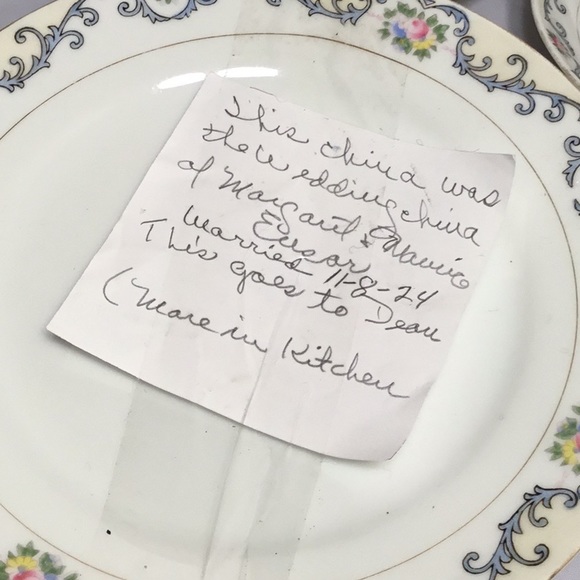 This china was
the wedding china
of Margaret & Maurice
Ensor
married 11-8-24
This goes to Dean
(More in Kitchen